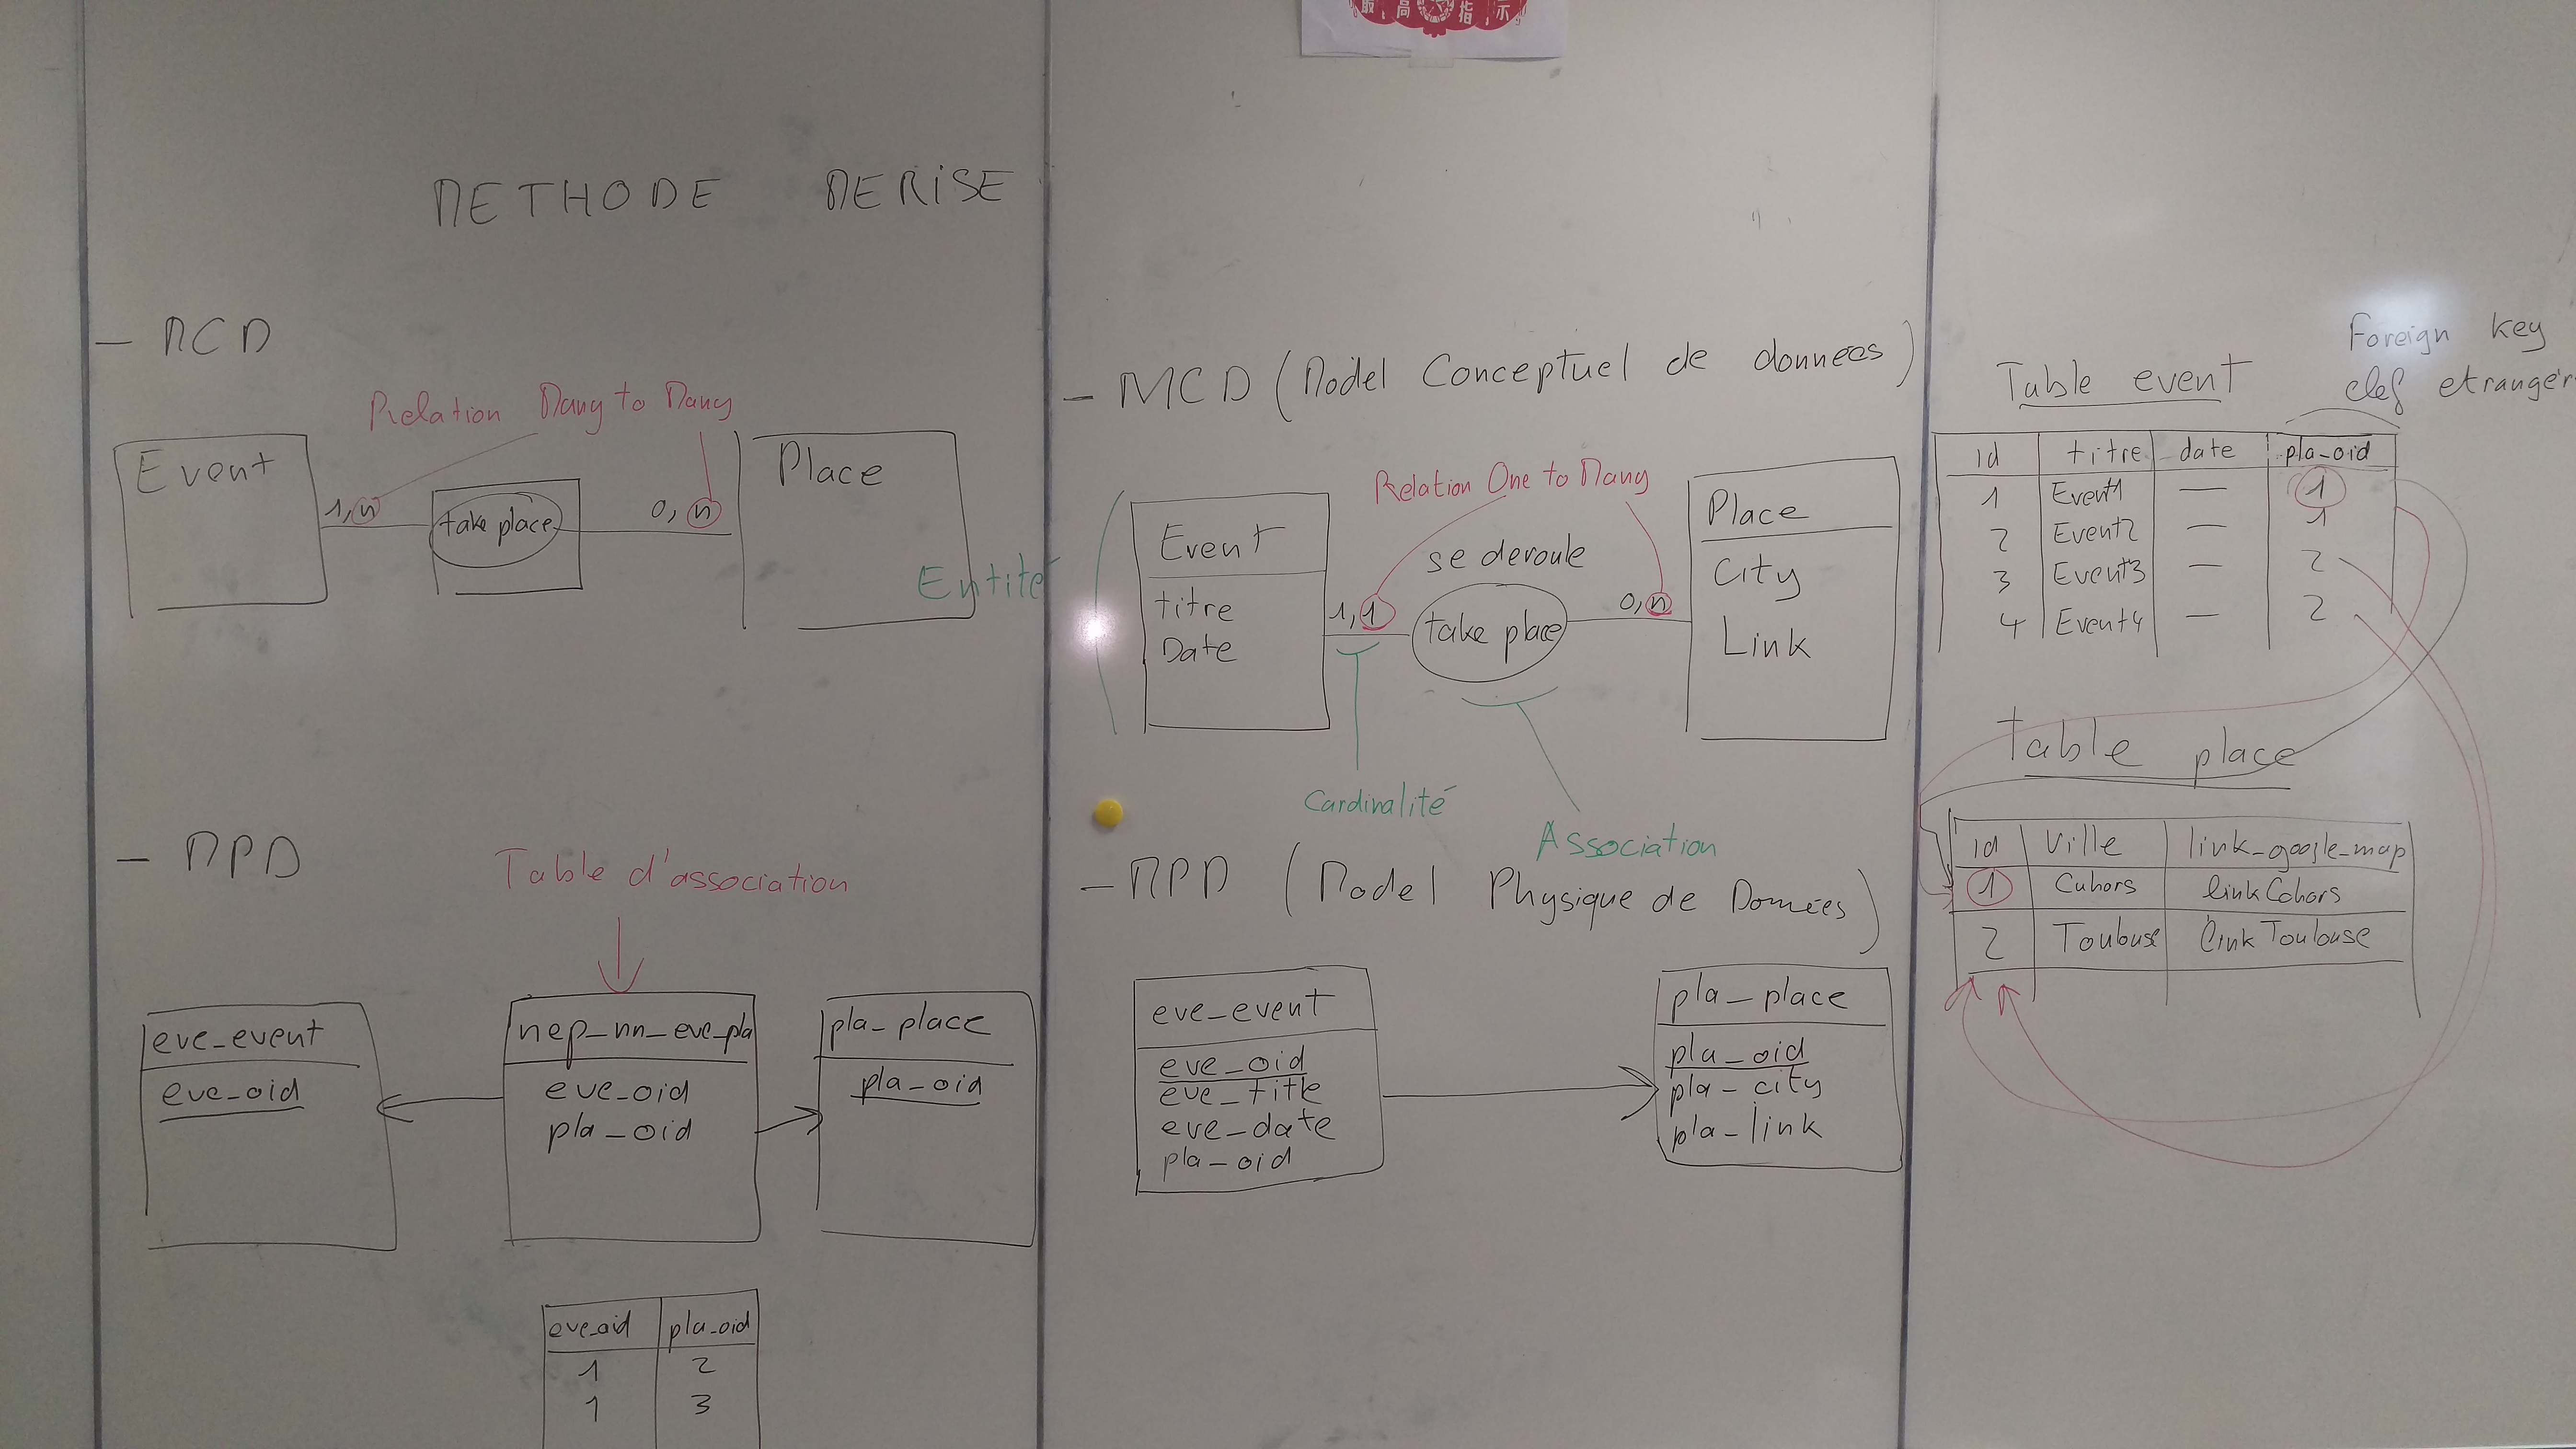 最高指示
METHODE MERISE
- MCD
Relation Many to Many
Event
1,n
take place
0,n
Place
Entité
- MPD
Table d'association
eve_event
eve_oid
nep_nn_eve_pla
eve_oid
pla_oid
pla_place
pla_oid
eve_oid pla_oid
1 2
1 3
- MCD (Model Conceptuel de données)
Relation One to Many
Event
titre
Date
1,1
se deroule
take place
0,n
Place
City
Link
Cardinalité
Association
- MPD (Model Physique de Données)
eve_event
eve_oid
eve_title
eve_date
pla_oid
pla_place
pla_oid
pla_city
pla_link
Foreign key
clef etranger
Table event
id titre date pla_oid
1 Event1 — 1
2 Event2 — 1
3 Event3 — 2
4 Event4 — 2
Table place
id Ville link_google_map
1 Cahors linkCahors
2 Toulouse linkToulouse